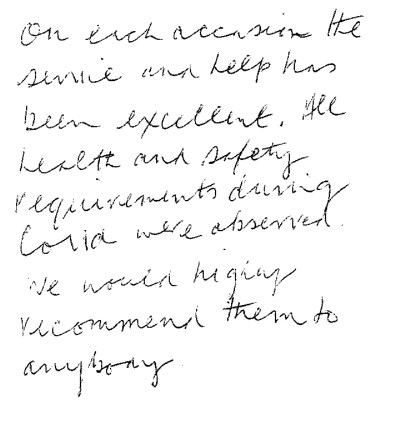 On each occasion the
service and help has
been excellent. All
health and safety
requirements during
Covid were observed.
We would highly
recommend them to
anybody